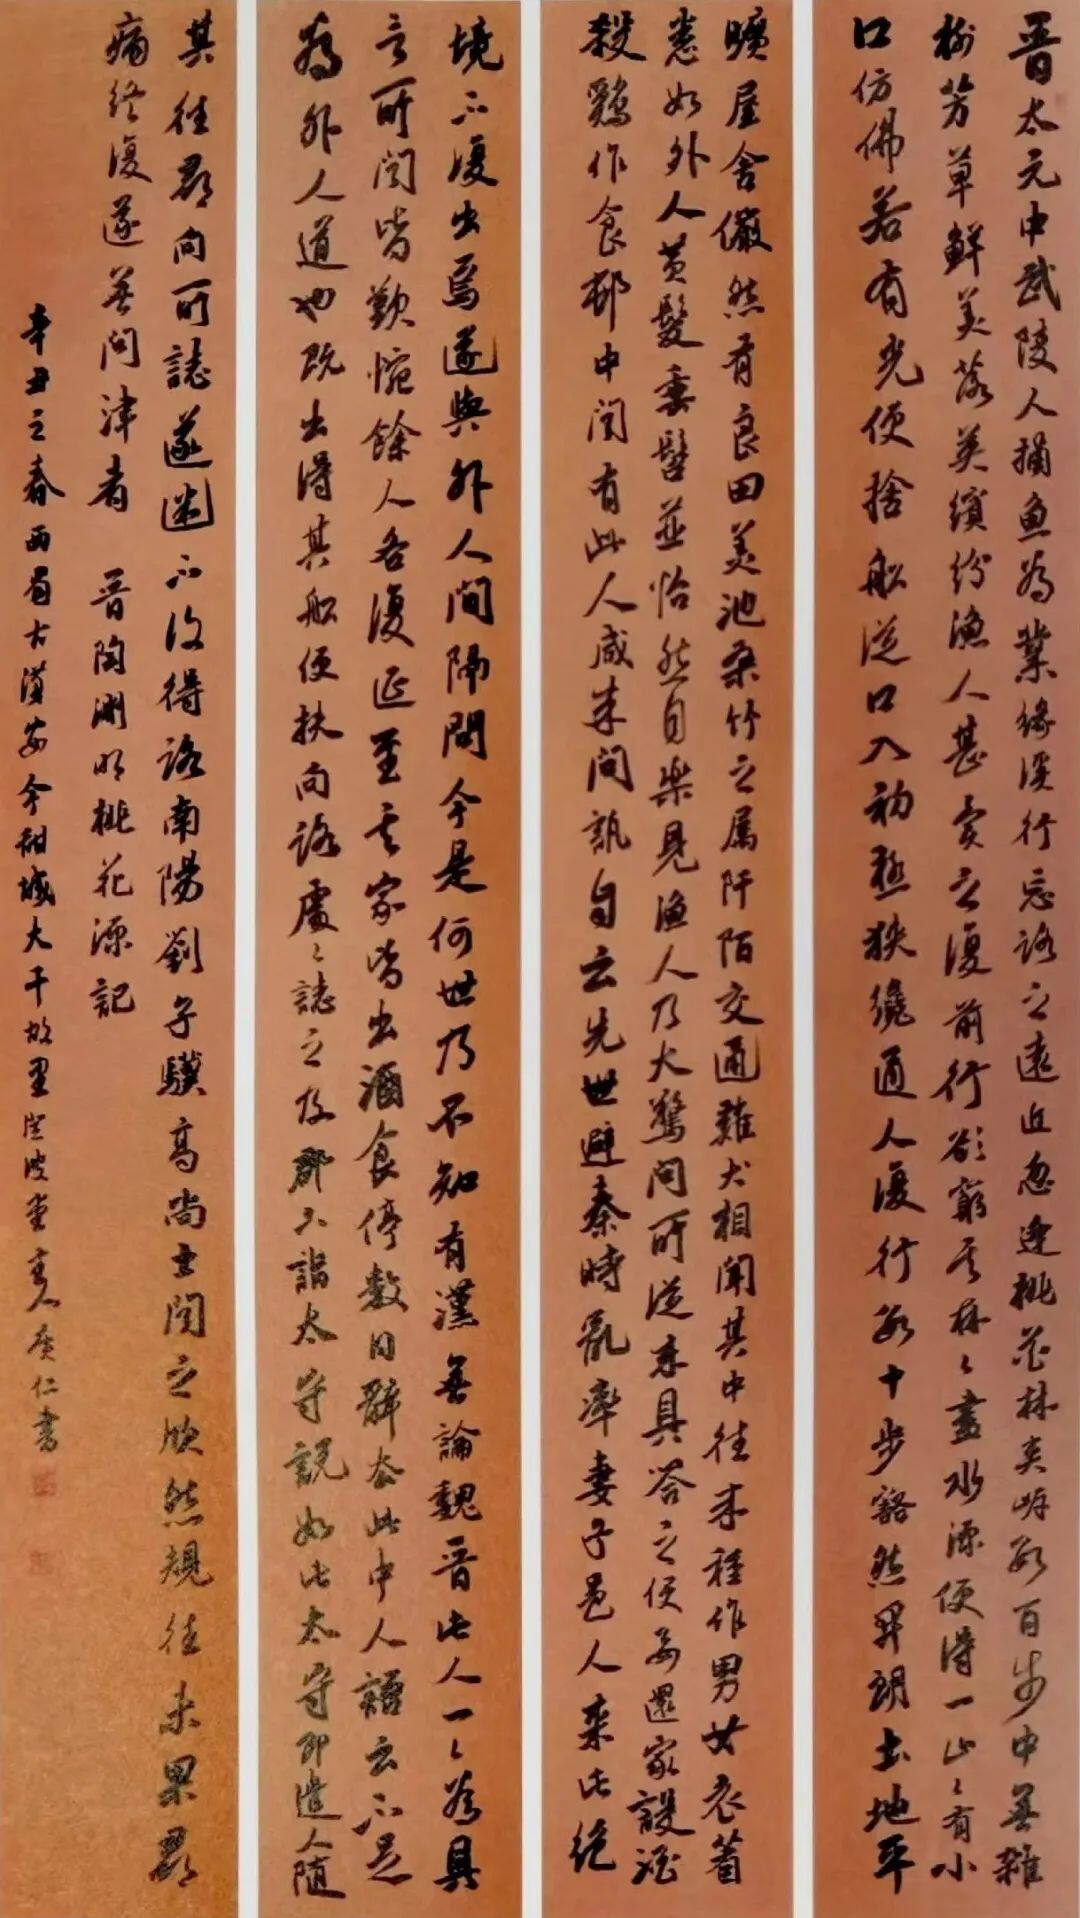 晋太元中武陵人捕魚為業緣溪行忘路之遠近忽逢桃花林夾岸數百步中無雜
樹芳草鮮美落英繽紛漁人甚異之復前行欲窮其林〻盡水源便得一山〻有小
口仿佛若有光便捨船從口入初極狹纔通人復行數十步豁然開朗土地平
曠屋舍儼然有良田美池桑竹之属阡陌交通雞犬相聞其中往来種作男女衣着
悉如外人黄髮垂髫並怡然自樂見漁人乃大驚問所從来具答之便要還家設酒
殺鷄作食邨中聞有此人咸来問訊自云先世避秦時亂率妻子邑人来此绝
境不復出焉遂與外人間隔問今是何世乃不知有漢無論魏晋此人一〻為具
言所聞皆歎惋餘人各復延至其家皆出酒食停數日辭去此中人語云不足
為外人道也既出得其船便扶向路處〻誌之及郡下詣太守說如此太守即遣人隨
其往尋向所誌遂迷不復得路南陽劉子驥高尚士聞之欣然規往未果尋
病終復遂無問津者 晋陶淵明桃花源記
辛丑之春西蜀古漢安今甜城大千故里
仁書